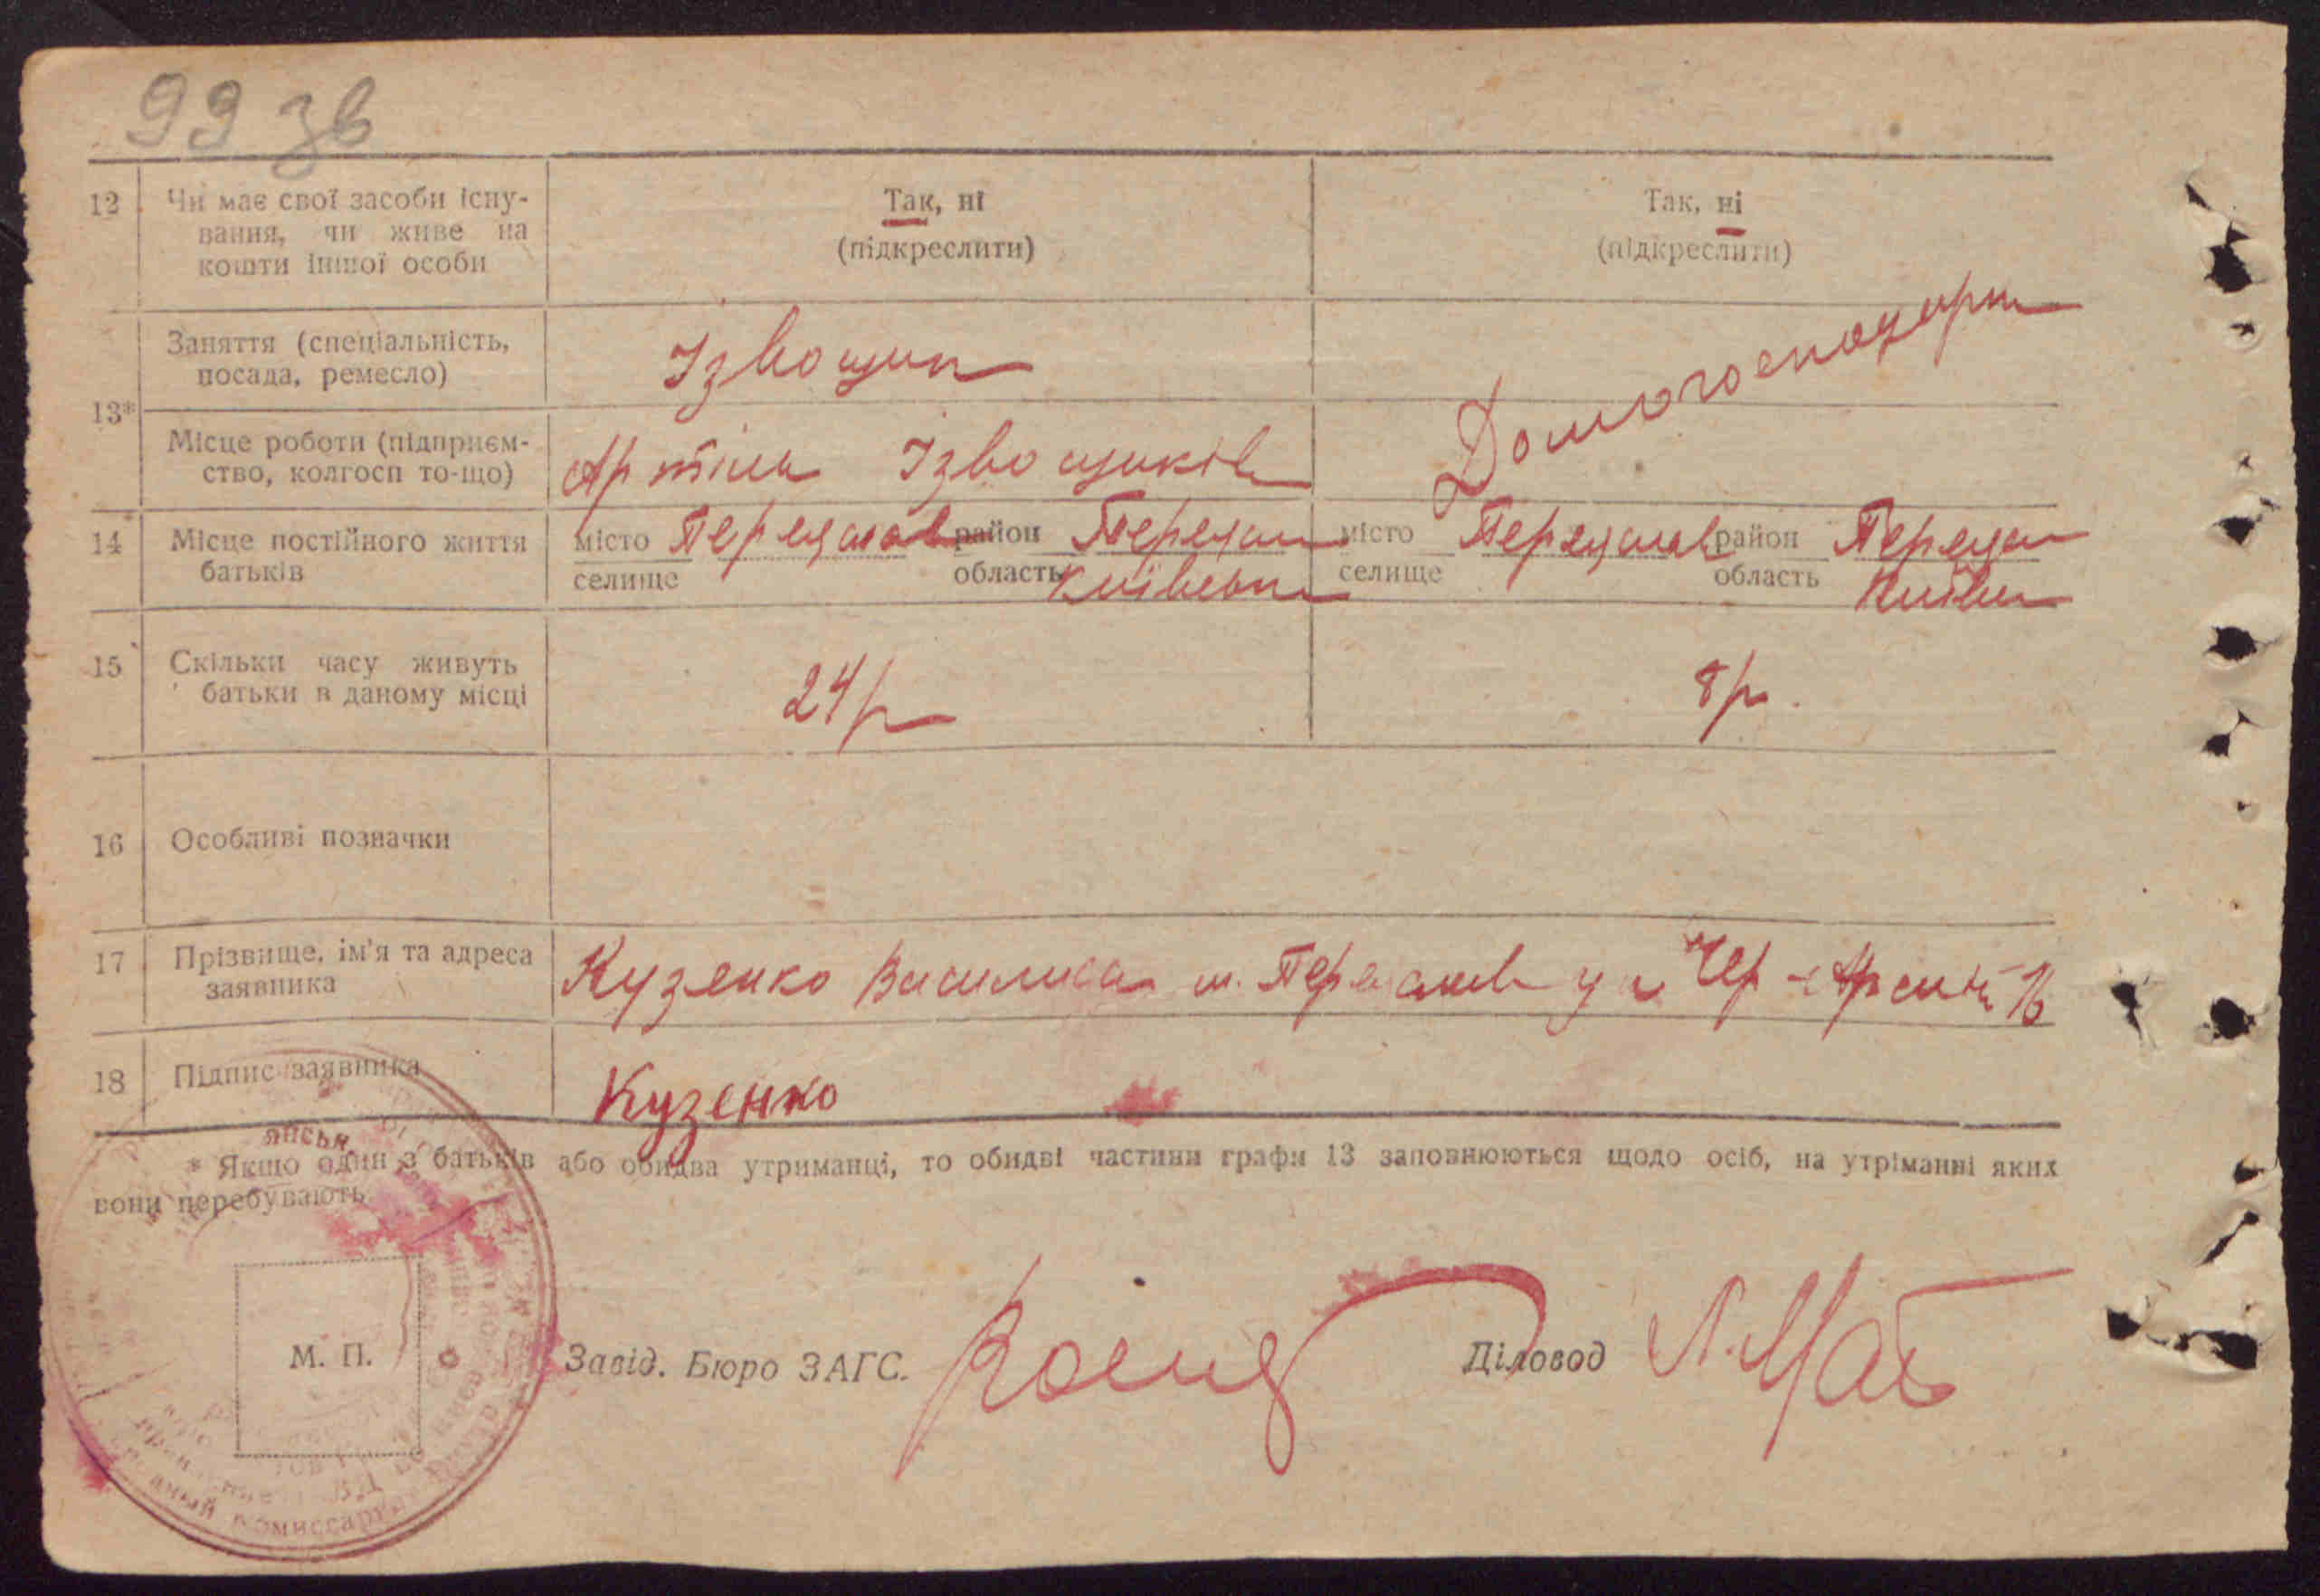 99 зв
12 Чи має свої засоби існу-
вання, чи живе на
кошти іншої особи
Так, ні
(підкреслити)
Так, ні
(підкреслити)
13*
Заняття (спеціальність,
посада, ремесло)
Ізвощик
Домогосподарка
Місце роботи (підприєм-
ство, колгосп то-що)
Артіль Ізвощиків
14 Місце постійного життя
батьків
місто Переяслав район Переяслав
селище область Київська
місто Переяслав район Переяслав
селище область Київська
15 Скільки часу живуть
батьки в даному місці
24 р
8 р.
16 Особливі позначки
17 Прізвище, ім'я та адреса
заявника
Кузенко Василиса м. Переяслав ул Чер-Армій
18 Підпис заявника
Кузенко
* Якщо один з батьків або обидва утриманці, то обидві частини графи 13 заповнюються щодо осіб, на утріманні яких
вони перебувають
М. П.
Завід. Бюро ЗАГС.
Діловод
комиссар